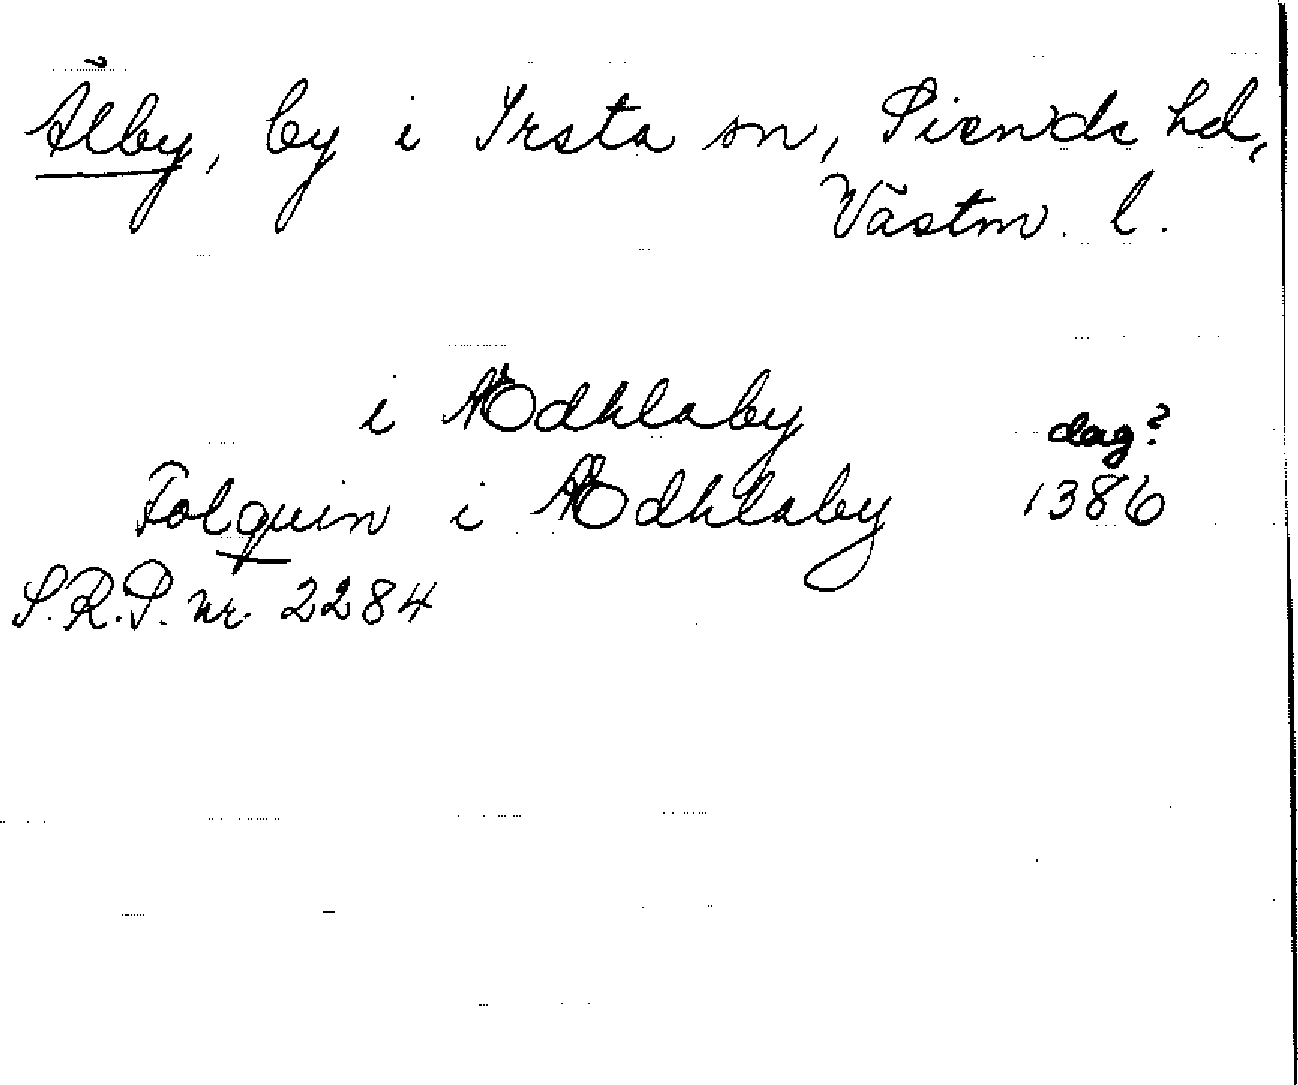 Älby, by i Irsta sn, Siende hd,
Västm. l.
i Ödhlaby
dag?
Folquin i Ödhlaby 1386
S.R.P. nr. 2284